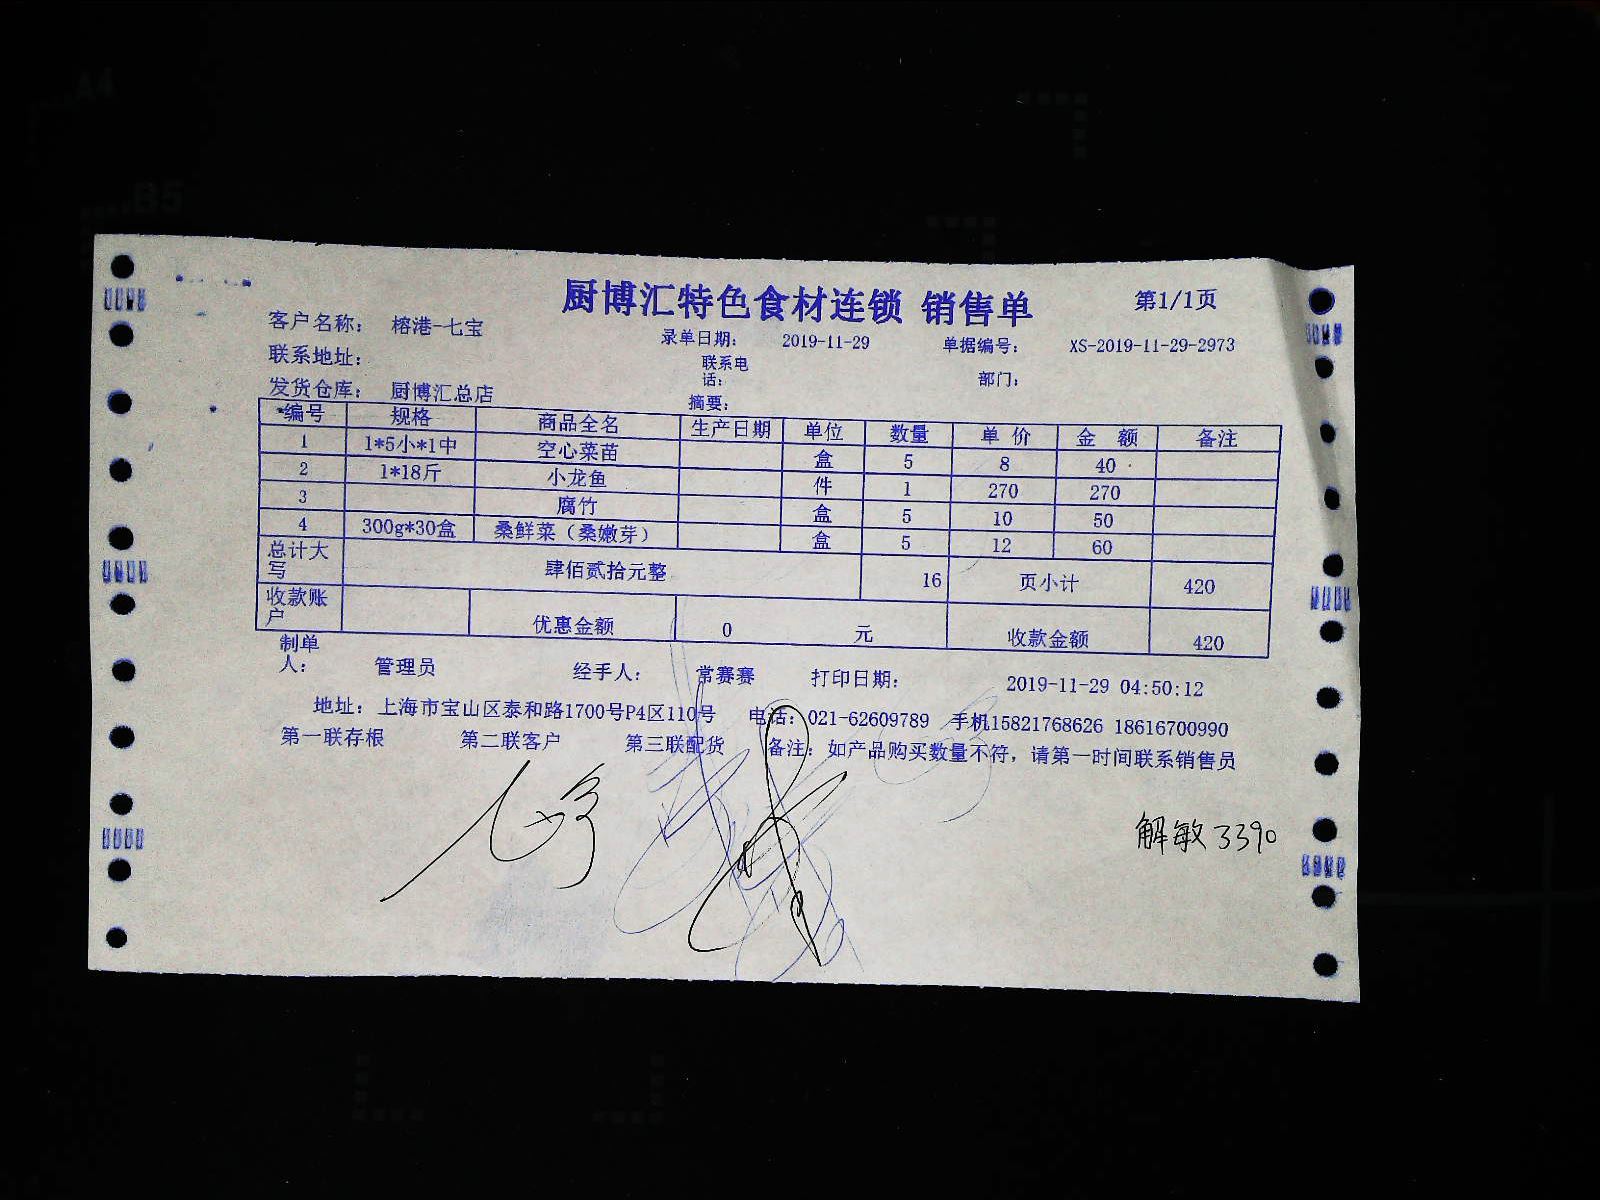 厨博汇特色食材连锁 销售单 第1/1页
客户名称: 榕港-七宝 录单日期: 2019-11-29 单据编号: XS-2019-11-29-2973
联系地址: 联系电话: 部门:
发货仓库: 厨博汇总店 摘要:
编号 规格 商品全名 生产日期 单位 数量 单 价 金 额 备注
1 1*5小*1中 空心菜苗 盒 5 8 40
2 1*18斤 小龙鱼 件 1 270 270
3 腐竹 盒 5 10 50
4 300g*30盒 桑鲜菜（桑嫩芽） 盒 5 12 60
总计大写 肆佰贰拾元整 16 页小计 420
收款账户 优惠金额 0 元 收款金额 420
制单人: 管理员 经手人: 常赛赛 打印日期: 2019-11-29 04:50:12
地址: 上海市宝山区泰和路1700号P4区110号 电话: 021-62609789 手机15821768626 18616700990
第一联存根 第二联客户 第三联配货 备注: 如产品购买数量不符，请第一时间联系销售员
解敏 3390
A4
B5